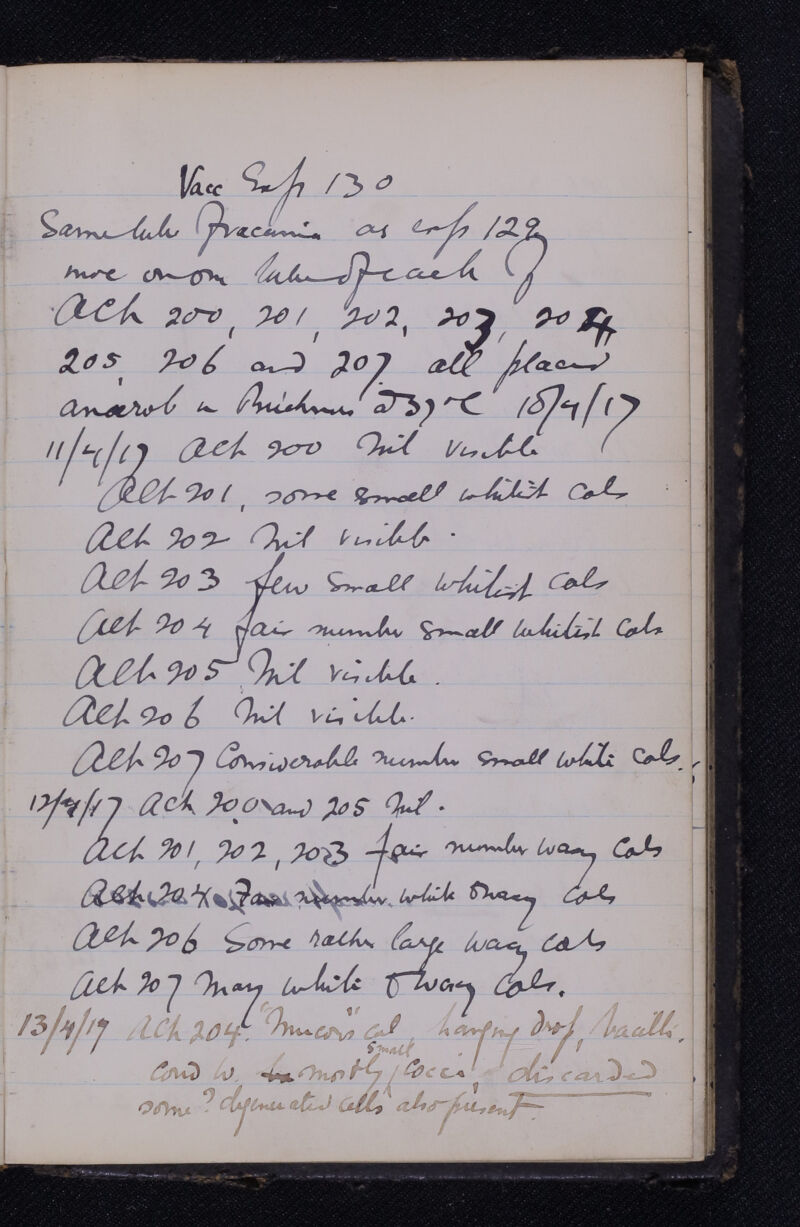 Vacc Exp 130
Same tube Fraccaria as exp 129
more on one tube of each of
ACh 200, 201, 202, 203, 204
205, 206 and 207 all placed
anaerob in Buchners at 37°C 10/4/17
11/4/17 ACh 200 Nil visible
ACh 201, some small whitish cols
ACh 202 Nil visible.
ACh 203 few small whitish cols
ACh 204 fair number small whitish cols
ACh 205 Nil visible.
ACh 206 Nil visible.
ACh 207 Considerable number small white cols.
12/4/17 ACh 200 and 205 Nil.
ACh 201, 202, 203 fair number waxy cols
ACh 204 Fair number white & waxy cols
ACh 206 Some rather large waxy cols
ACh 207 Many white & waxy cols.
13/4/17 ACh 204. "Mucous" col hanging drop, bacilli.
cond w. mostly small cocci discarded
some ? degenerated cells also present